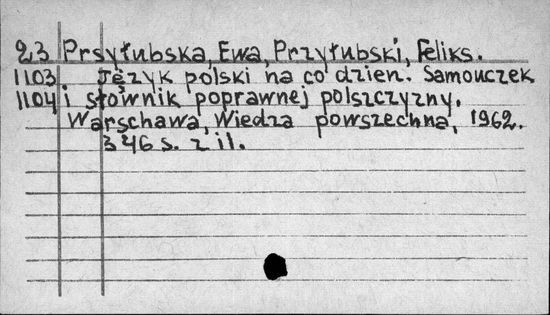 23 Prsyłubska, Ewa, Przyłubski, Feliks.
1103 Język polski na co dzien. Samouczek
1104 i słownik poprawnej polszczyzny.
Warschawa, Wiedza powszechna, 1962.
346 s. z il.